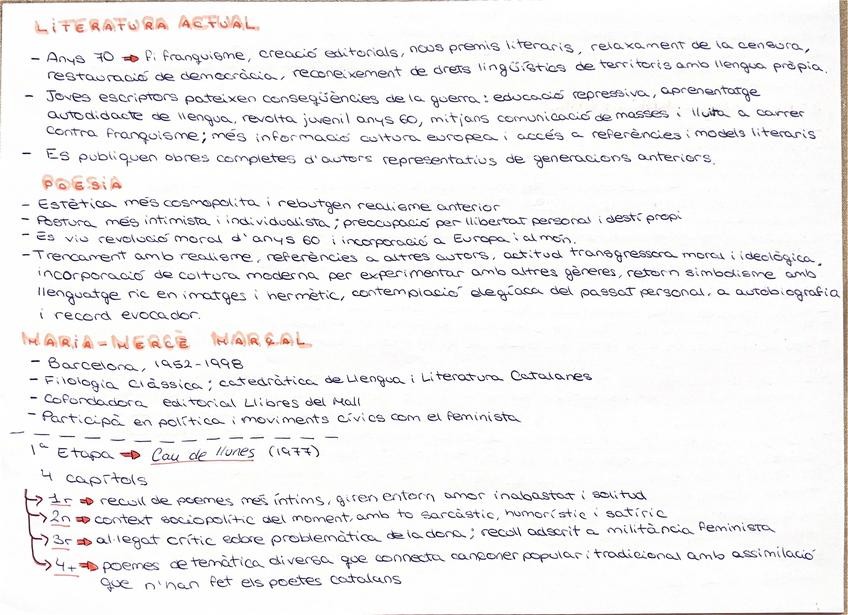 LITERATURA ACTUAL
- Anys 70 ➡ fi franquisme, creació editorials, nous premis literaris, relaxament de la censura,
restauració de democràcia, reconeixement de drets lingüístics de territoris amb llengua pròpia.
- Joves escriptors pateixen conseqüències de la guerra: educació repressiva, aprenentatge
autodidacte de llengua, revolta juvenil anys 60, mitjans comunicació de masses i lluita a carrer
contra franquisme; més informació cultura europea i accés a referències i models literaris
- Es publiquen obres completes d'autors representatius de generacions anteriors.
POESIA
- Estètica més cosmopolita i rebutgen realisme anterior
- Postura més intimista i individualista; preocupació per llibertat personal i destí propi
- Es viu revolució moral d'anys 60 i incorporació a Europa i al món.
- Trencament amb realisme, referències a altres autors, actitud transgressora moral i ideològica,
incorporació de cultura moderna per experimentar amb altres gèneres, retorn simbolisme amb
llenguatge ric en imatges i hermètic, contemplació elegíaca del passat personal, a autobiografia
i record evocador.
MARIA-MERCÈ MARÇAL
- Barcelona, 1952-1998
- Filologia Clàssica; catedràtica de Llengua i Literatura Catalanes
- Cofundadora editorial Llibres del Mall
- Participà en política i moviments cívics com el feminista
1ª Etapa ➡ Cau de llunes (1977)
4 capítols
1r ➡ recull de poemes més íntims, giren entorn amor inabastat i solitud
2n ➡ context sociopolític del moment, amb to sarcàstic, humorístic i satíric
3r ➡ al·legat crític sobre problemàtica de la dona; recull adscrit a militància feminista
4t ➡ poemes de temàtica diversa que connecta cançoner popular i tradicional amb assimilació
que n'han fet els poetes catalans